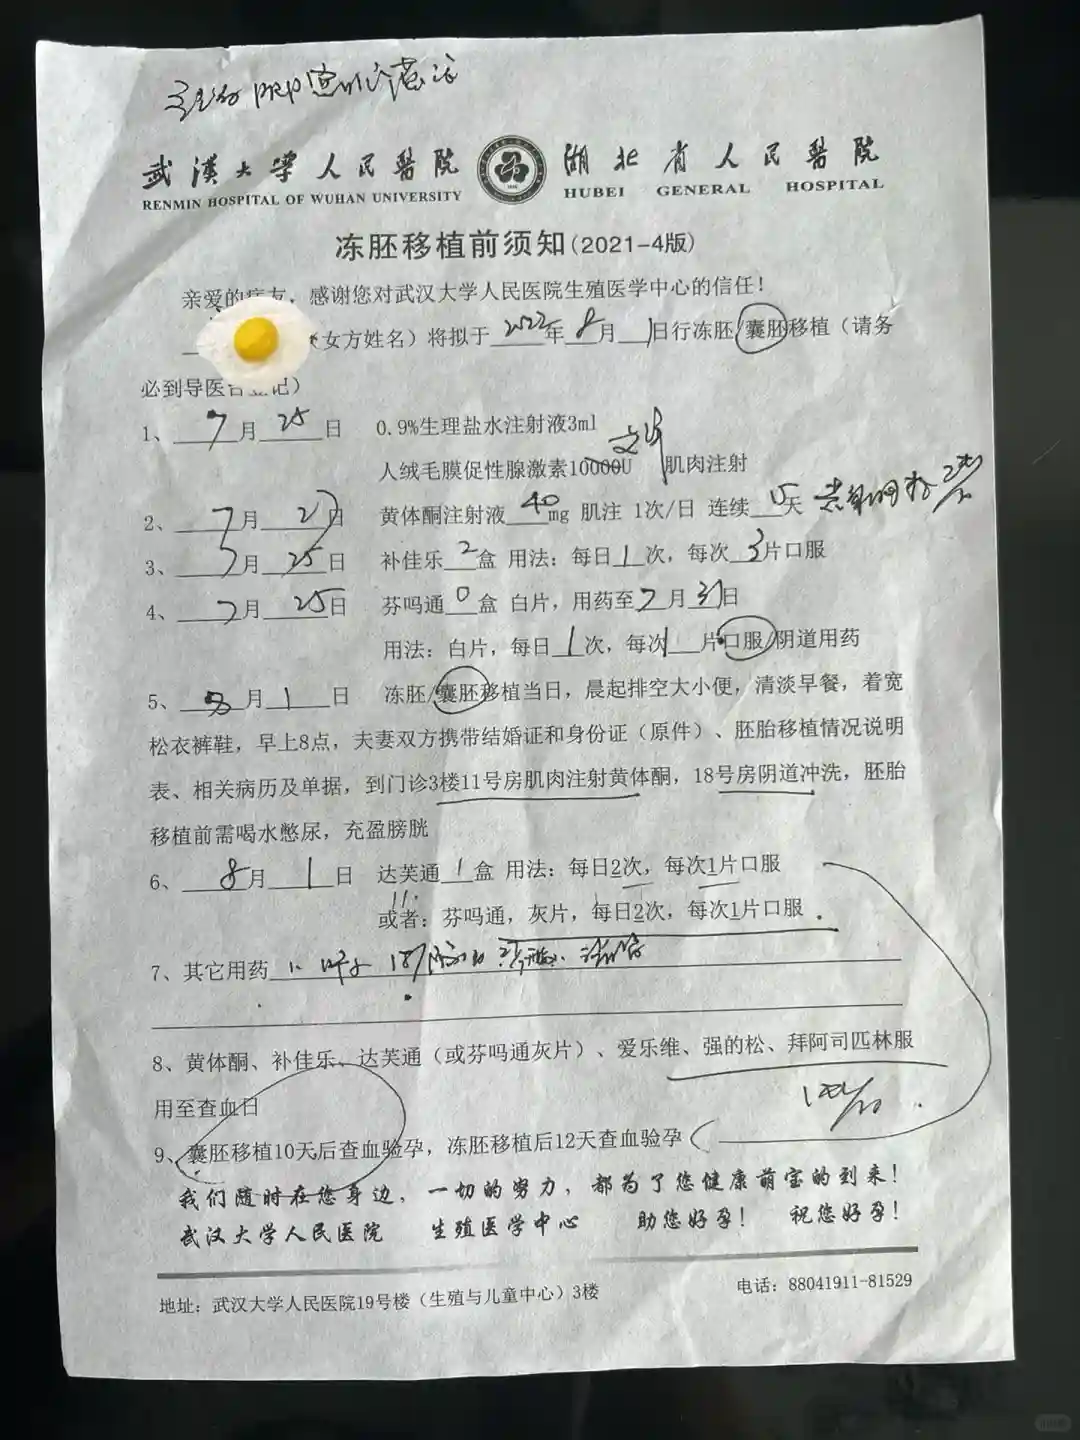 武漢大學人民醫院 湖北省人民醫院
RENMIN HOSPITAL OF WUHAN UNIVERSITY HUBEI GENERAL HOSPITAL
冻胚移植前须知(2021-4版)
亲爱的病友,感谢您对武汉大学人民医院生殖医学中心的信任!
(女方姓名)将拟于2022年8月1日行冻胚/囊胚移植(请务
必到导医台登记)
1、7月25日 0.9%生理盐水注射液3ml
人绒毛膜促性腺激素10000U 肌肉注射
2、7月27日 黄体酮注射液40mg 肌注 1次/日 连续15天
3、7月25日 补佳乐2盒 用法:每日1次,每次3片口服
4、7月25日 芬吗通0盒 白片,用药至7月31日
用法:白片,每日1次,每次1片口服/阴道用药
5、8月1日 冻胚/囊胚移植当日,晨起排空大小便,清淡早餐,着宽
松衣裤鞋,早上8点,夫妻双方携带结婚证和身份证(原件)、胚胎移植情况说明
表、相关病历及单据,到门诊3楼11号房肌肉注射黄体酮,18号房阴道冲洗,胚胎
移植前需喝水憋尿,充盈膀胱
6、8月1日 达芙通1盒 用法:每日2次,每次1片口服
或者:芬吗通,灰片,每日2次,每次1片口服
7、其它用药
8、黄体酮、补佳乐、达芙通(或芬吗通灰片)、爱乐维、强的松、拜阿司匹林服
用至查血日
9、囊胚移植10天后查血验孕,冻胚移植后12天查血验孕
我们随时在您身边,一切的努力,都为了您健康萌宝的到来!
武汉大学人民医院 生殖医学中心 助您好孕! 祝您好孕!
地址:武汉大学人民医院19号楼(生殖与儿童中心)3楼 电话:88041911-81529